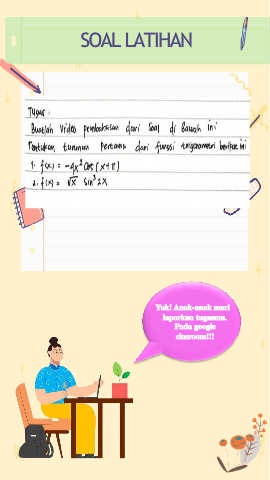 SOAL LATIHAN
Tugas :
Buatlah Video pembahasan dari soal di Bawah ini
Tentukan turunan pertama dari fungsi trigonometri berikut ini
1. f(x) = -4x² cos (x+π)
2. f(x) = √x sin³ 2x
Yuk! Anak-anak mari
laporkan tugasnya.
Pada google
classroom!!!